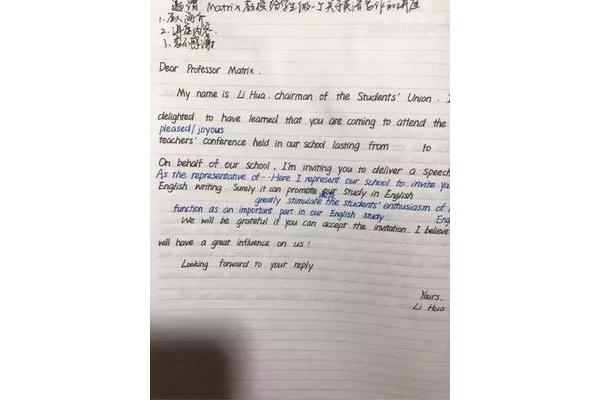 邀请 Matrix 教授给学生做一个关于英语写作的讲座
1.个人简介
2.讲座内容
3.表示感谢
Dear Professor Matrix.
My name is Li Hua. chairman of the Students' Union. I
delighted to have learned that you are coming to attend the
pleased/joyous
teachers' conference held in our school lasting from to
On behalf of our school, I'm inviting you to deliver a speech
As the representative of... Here I represent our school to invite you
English writing. Surely it can promote our study in English
greatly stimulate the students' enthusiasm of
function as an important part in our English study. Eng
We will be grateful if you can accept the invitation. I believe
will have a great influence on us!
Looking forward to your reply
Yours.
Li Hua